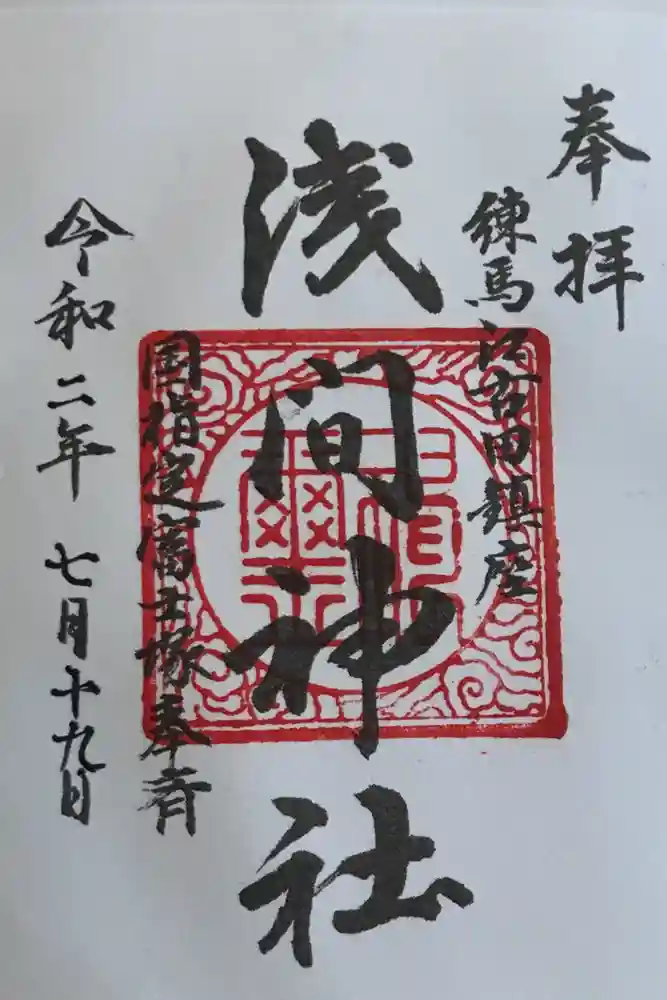 奉拝
練馬江古田鎮座
浅間神社
国指定富士塚奉斎
令和二年七月十九日